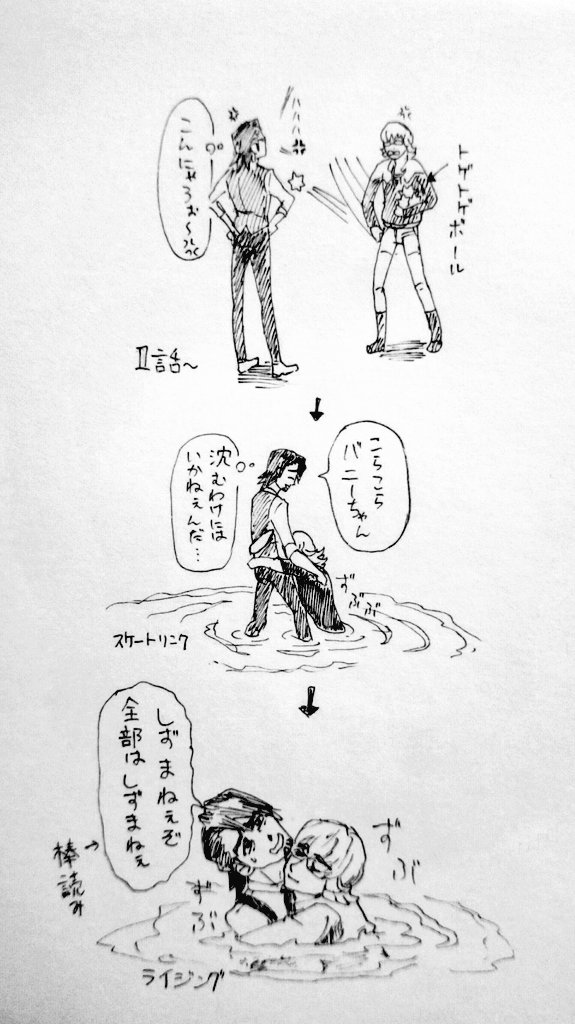 トゲトゲボール
ハハハ
こんにゃろぉ〜
II話〜
こらこら
バニーちゃん
沈むわけには
いかねぇんだ…
ずぶぶ
スケートリンク
しずまねぇぞ
全部はしずまねぇ
棒読み
ずぶ
ずぶ
ライジング